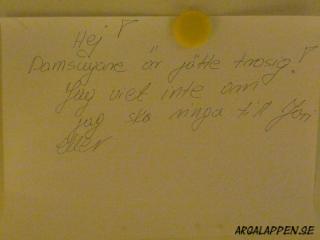 Hej!
Damsugare är jätte trasig!
Jag vet inte om
jag ska ringa till Jori
eller
ARGALAPPEN.SE